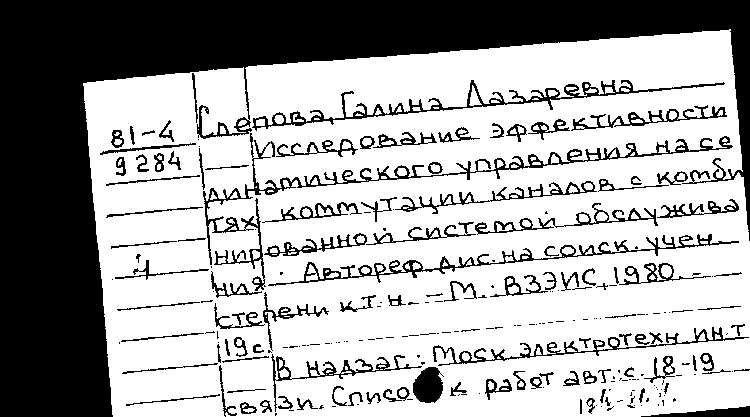 Слепова, Галина Лазаревна
81-4
9284
Исследование эффективности
динамического управления на се
тях коммутации каналов с комби
нированной системой обслужива
ния. Автореф. дис. на соиск. учен.
степени к.т.н. – М.: ВЗЭИС, 1980. –
19 с.
В надзаг.: Моск электротехн ин.т
связи. Список работ авт.: с. 18-19.